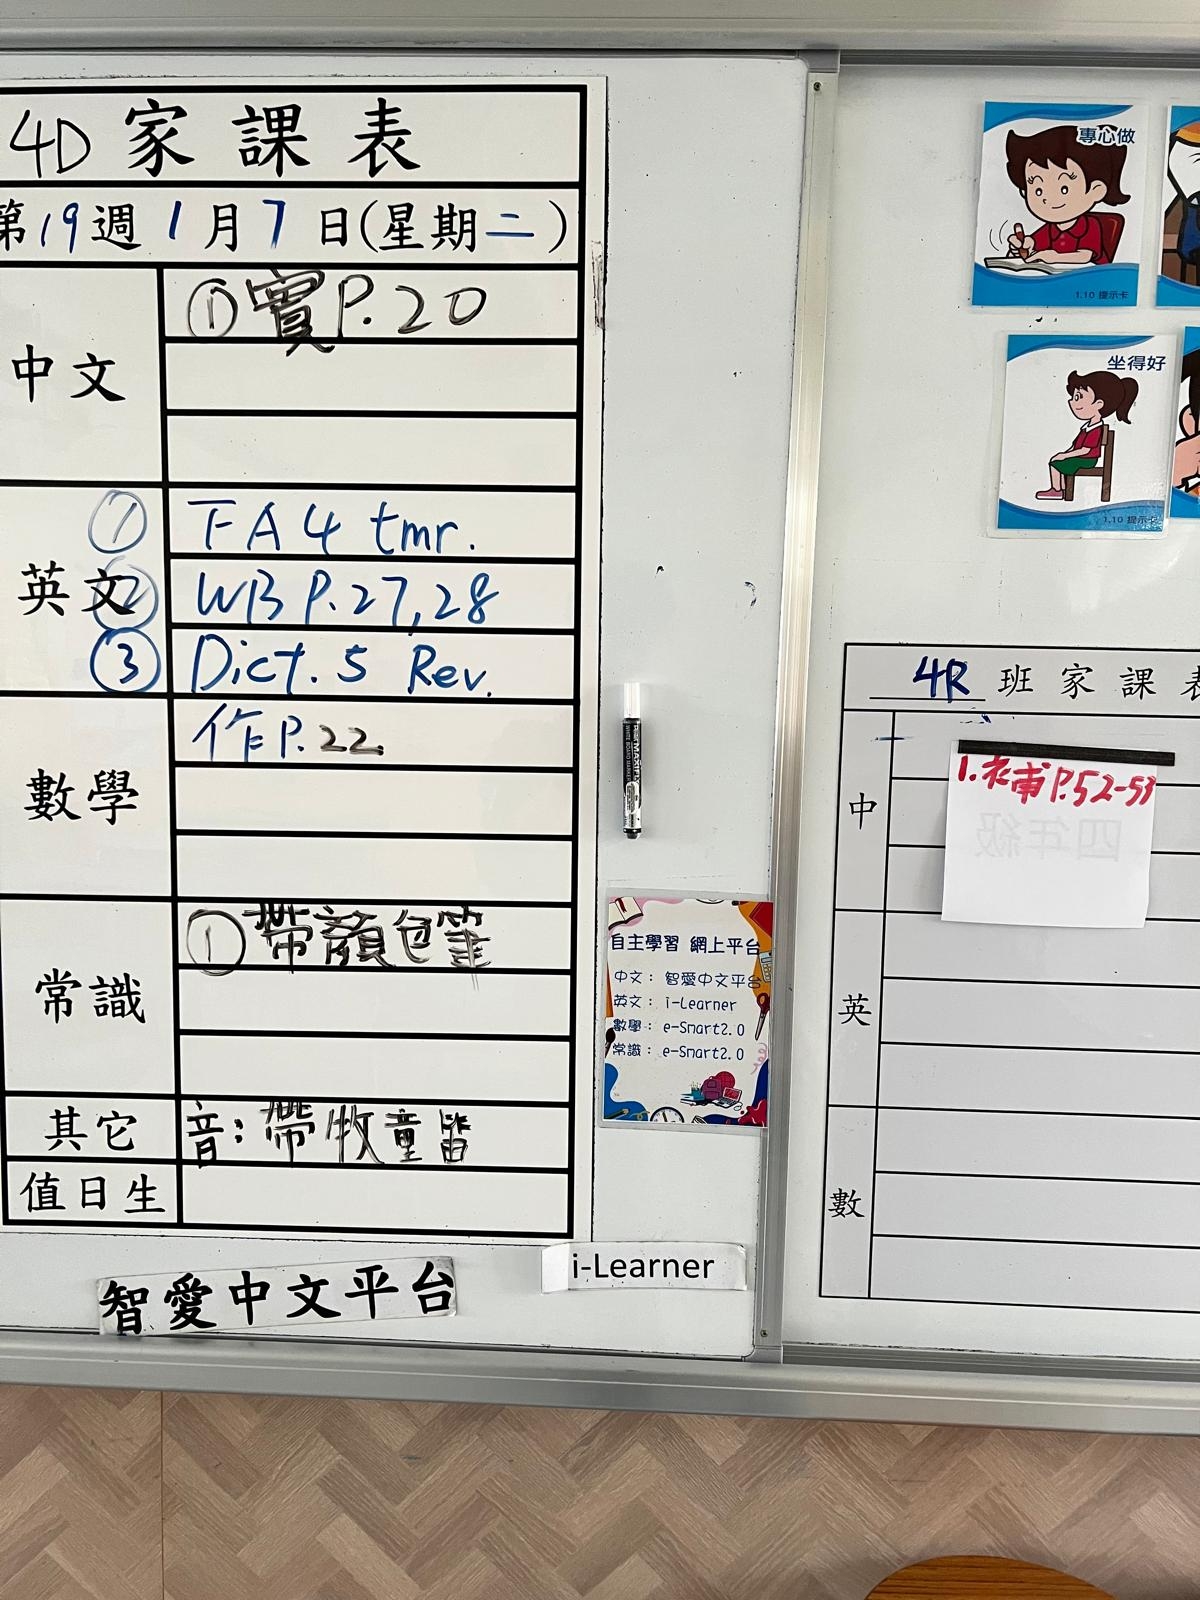 4D 家課表
第19週 1月7日(星期二)
中文
①實P.20
英文
① FA4 tmr.
② WB P.27,28
③ Dict. 5 Rev.
數學
作P.22
常識
①帶顏色筆
其它
音:帶牧童笛
值日生
智愛中文平台
i-Learner
自主學習 網上平台
中文: 智愛中文平台
英文: i-Learner
數學: e-Smart2.0
常識: e-Smart2.0
專心做
1.10 提示卡
坐得好
1.10 提示卡
4R 班家課表
中
1.補P.52-53
四年級
英
數